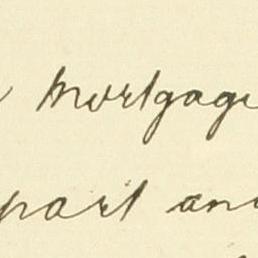 mortgage
part and